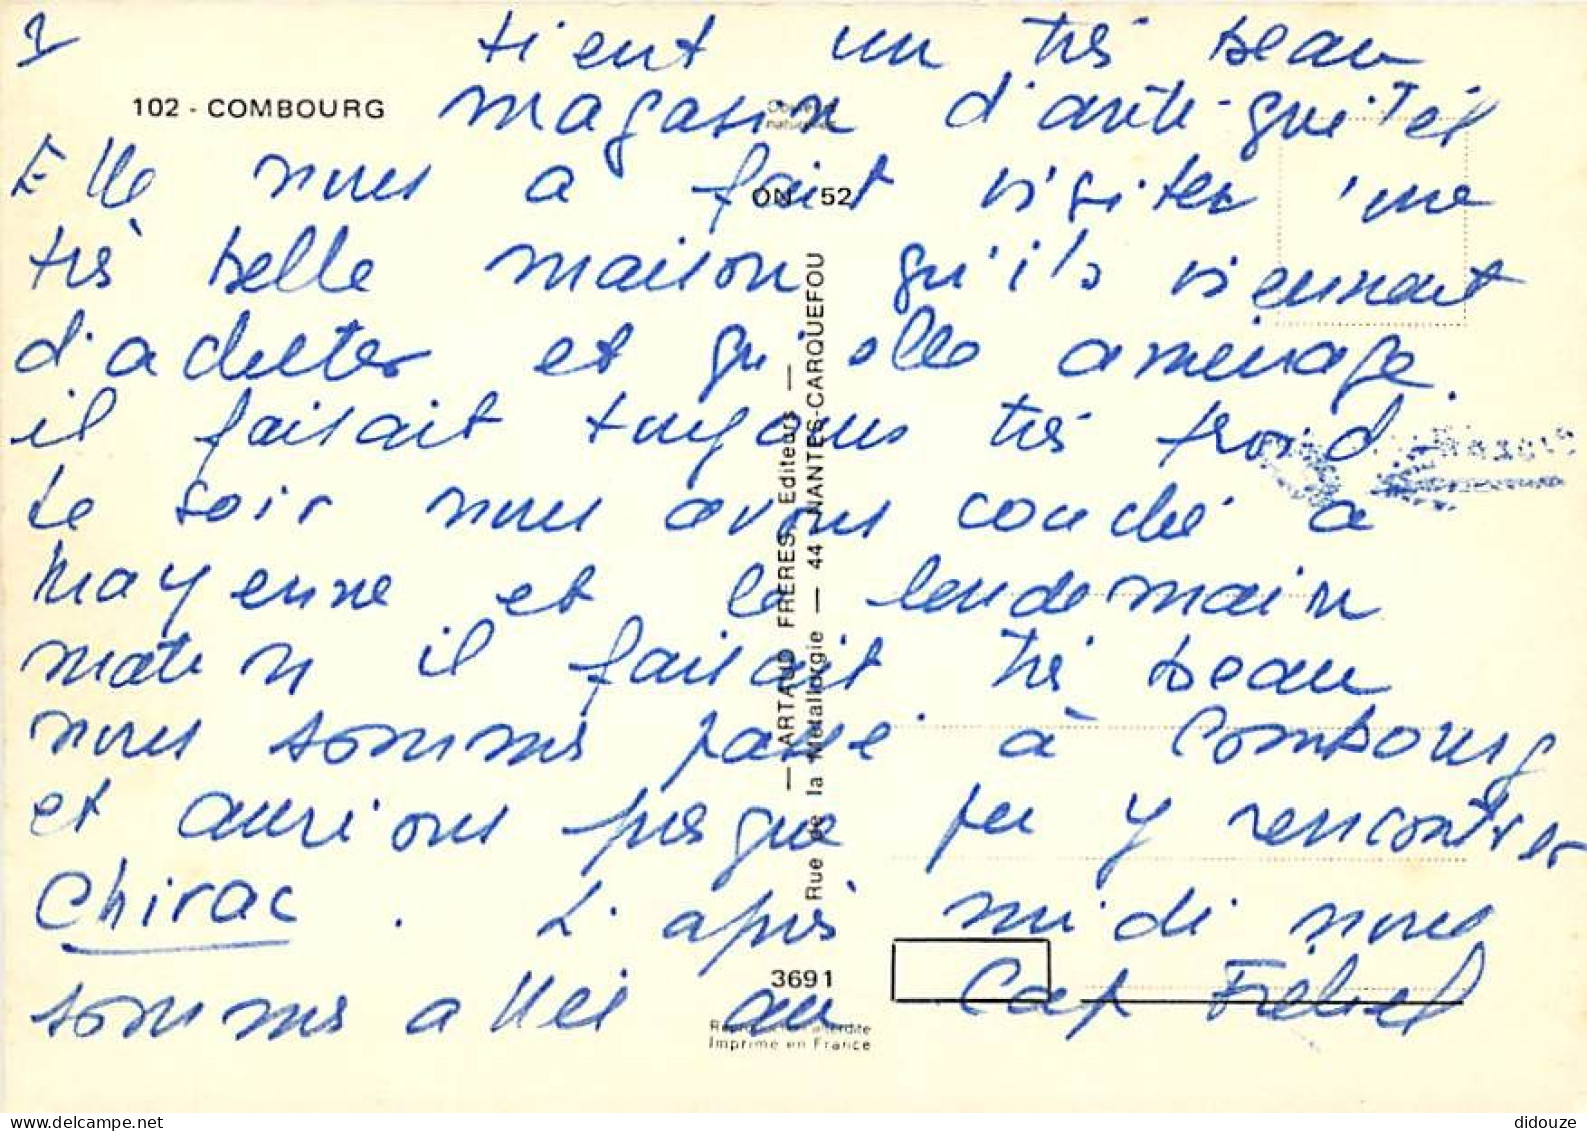 2
tient un très beau
102 - COMBOURG
magasin d'antiquités
Elle nous a fait visiter une
ON 52
très belle maison qu'ils viennent
d'acheter et qu'elle aménage.
il faisait toujours très froid
Le soir nous avons couché a
Mayenne et le lendemain
matin il faisait très beau
nous sommes passé à Combourg
et aurions presque pu y rencontrer
Chirac . L'après midi nous
sommes allés au Cap Fréhel
— ARTAUD FRERES, Editeurs —
Rue de la Métallorgie — 44 NANTES-CARQUEFOU
3691
Reproduction interdite
Imprimé en France
didouze